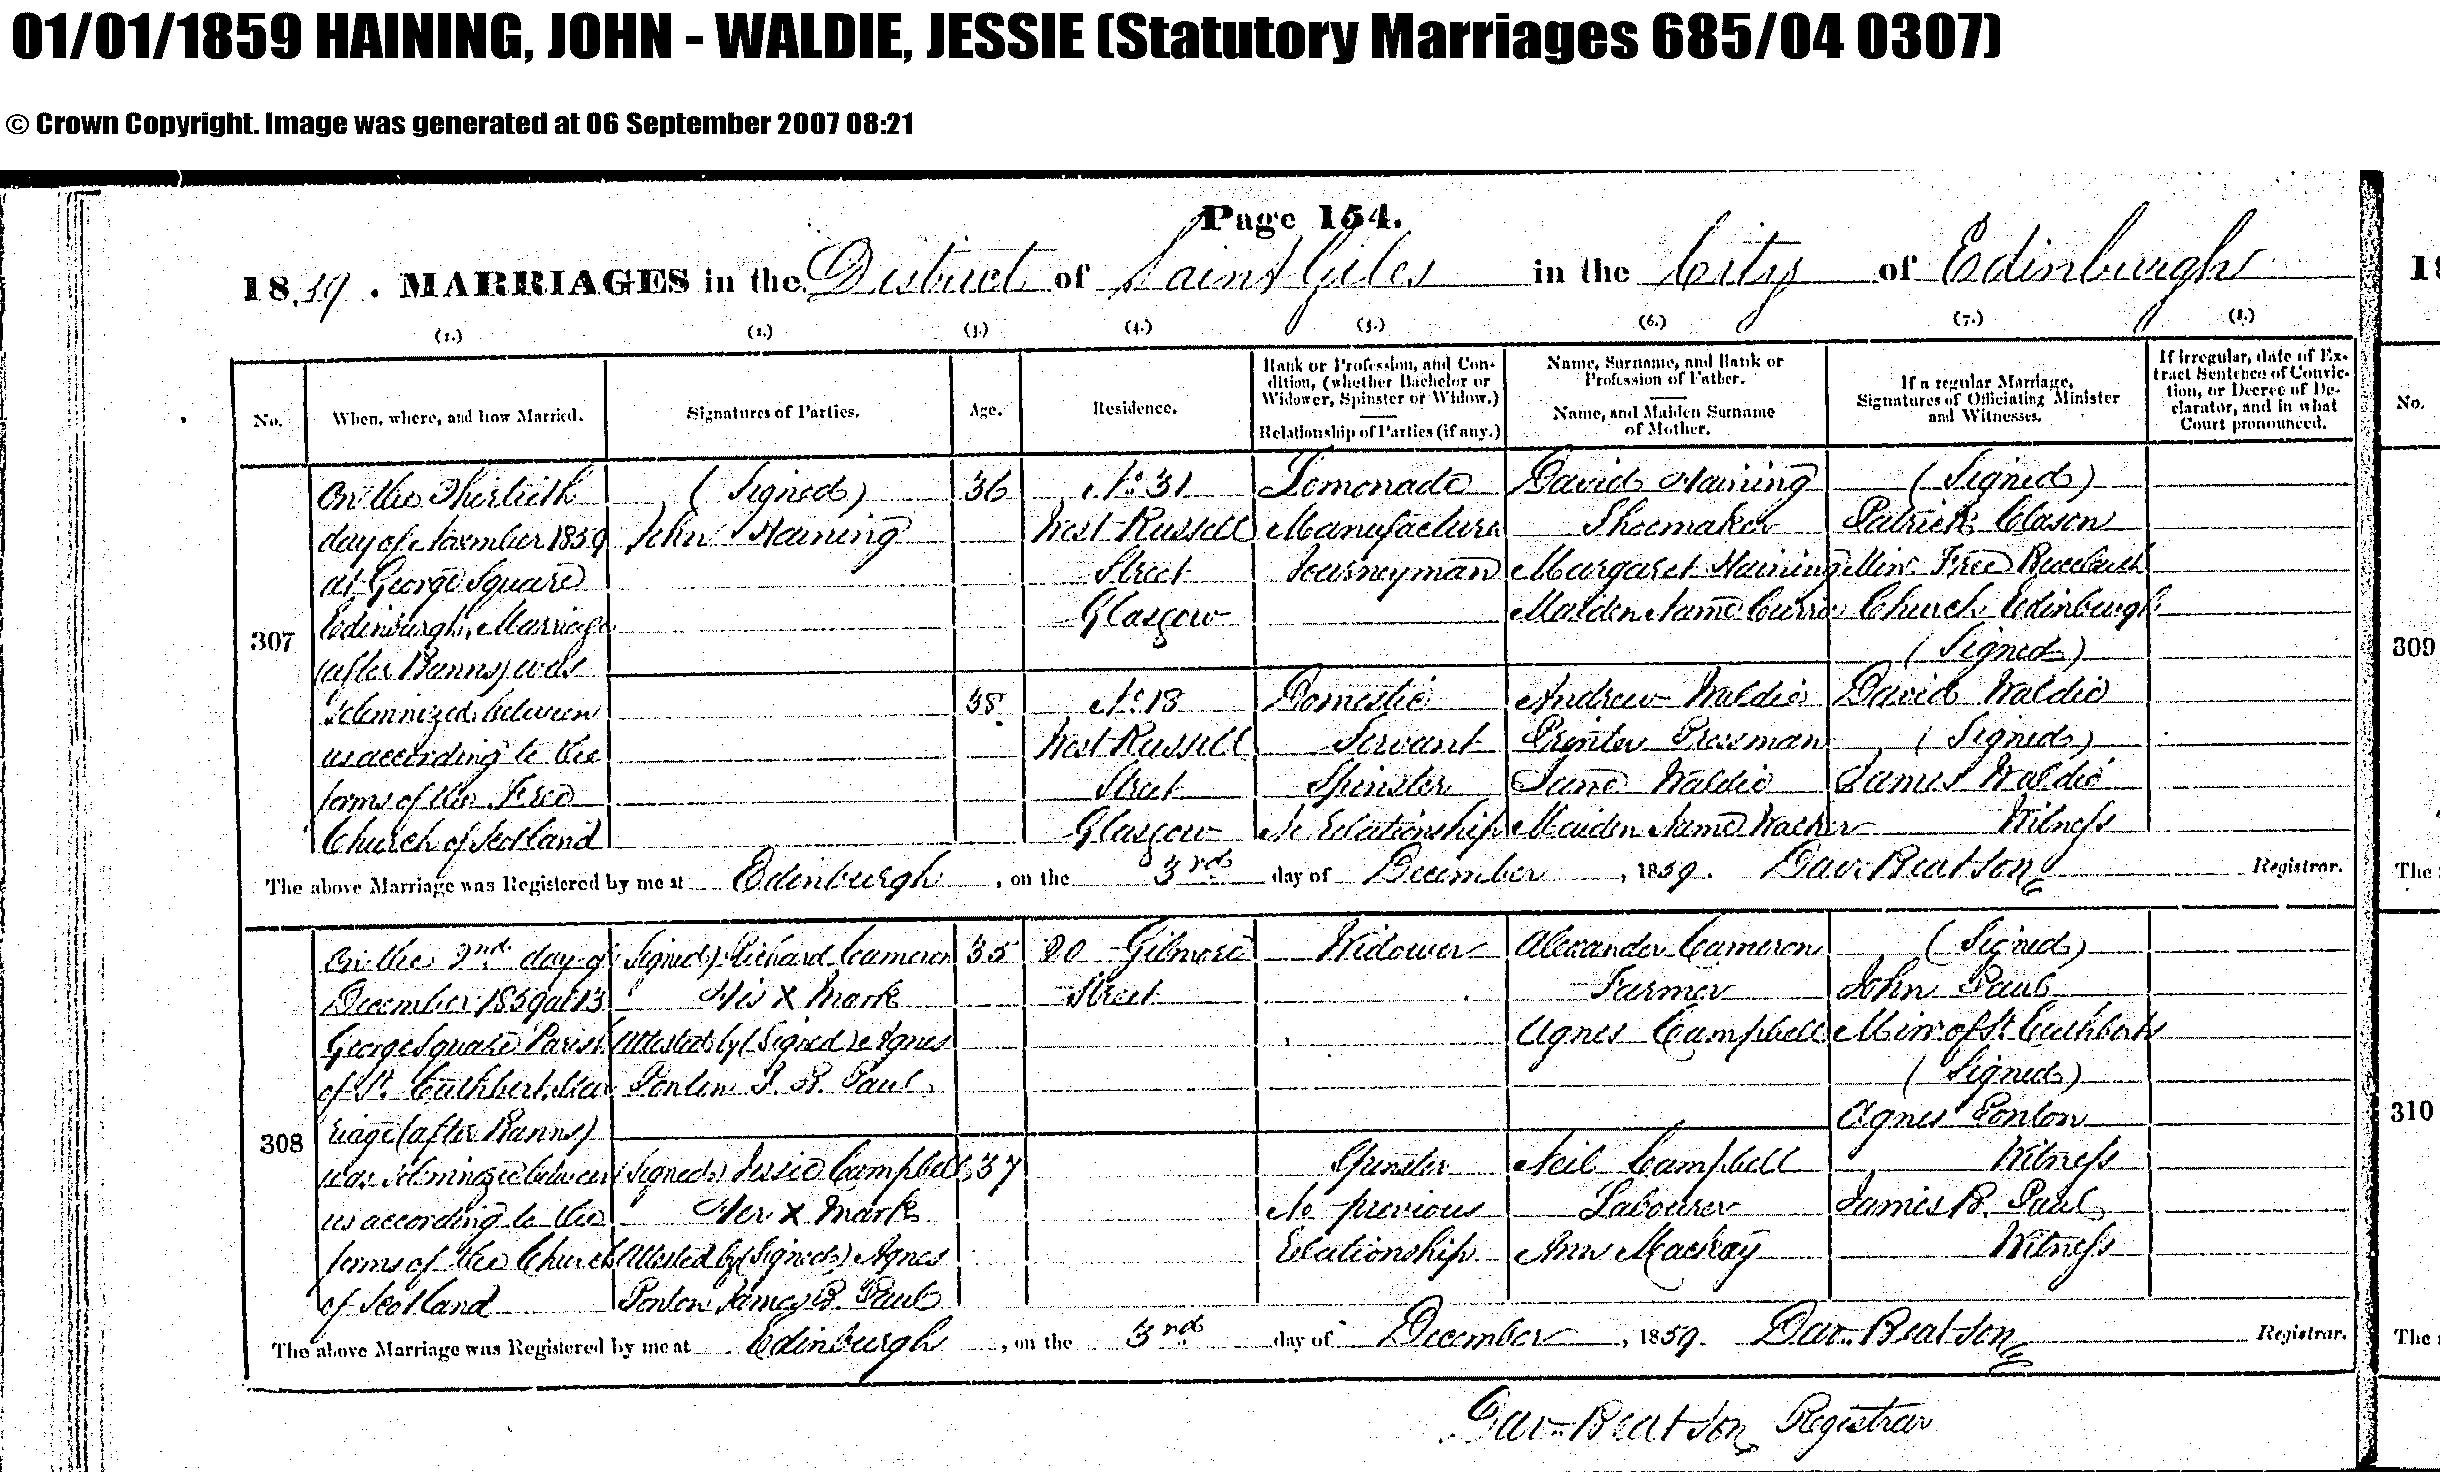 01/01/1859 HAINING, JOHN - WALDIE, JESSIE (Statutory Marriages 685/04 0307)
© Crown Copyright. Image was generated at 06 September 2007 08:21
Page 154.
1859. MARRIAGES in the District of Saint Giles in the City of Edinburgh
(1.) (2.) (3.) (4.) (5.) (6.) (7.) (8.)
No.
When, where, and how Married.
Signatures of Parties.
Age.
Residence.
Rank or Profession, and Con-
dition, (whether Bachelor or
Widower, Spinster or Widow.)
Relationship of Parties (if any.)
Name, Surname, and Rank or
Profession of Father.
Name, and Maiden Surname
of Mother.
If a regular Marriage,
Signatures of Officiating Minister
and Witnesses.
If irregular, date of Ex-
tract Sentence of Convic-
tion, or Decree of De-
clarator, and in what
Court pronounced.
No.
307
On the Thirtieth
day of November 1859
at George Square
Edinburgh, Marriage
(after Banns) was
Solemnized between
us according to the
forms of the Free
Church of Scotland
(Signed)
John Haining
36
No. 31
West Russell
Street
Glasgow
Lemonade
Manufacture
Journeyman
David Haining
Shoemaker
Margaret Haining
Maiden Name Currie
(Signed)
Patrick Clason
Minr. Free Buccleuch
Church Edinburgh
(Signed)
David Waldie
(Signed)
James Waldie
Witness
38
No. 18
West Russell
Street
Glasgow
Domestic
Servant
Spinster
No Relationship
Andrew Waldie
Printer Pressman
Jane Waldie
Maiden Name Walker
309
The above Marriage was Registered by me at Edinburgh, on the 3rd day of December, 1859. Dav. Beatson Registrar.
The
308
On the 2nd day of
December 1859 at 13
George Square Parish
of St. Cuthbert, Mar
riage (after Banns)
was Solemnized between
us according to the
forms of the Church
of Scotland
(Signed) Richard Cameron
His X Mark
Attested by (Signed) Agnes
Ponton J. B. Paul
35
20 Gilmore
Street
Widower
Alexander Cameron
Farmer
Agnes Campbell
(Signed)
John Paul
Minr. of St. Cuthberts
(Signed)
Agnes Ponton
Witness
James B. Paul
Witness
(Signed) Jessie Campbell
Her X Mark
Attested by (Signed) Agnes
Ponton James B. Paul
37
Spinster
No previous
Relationship
Neil Campbell
Labourer
Ann Mackay
310
The above Marriage was Registered by me at Edinburgh, on the 3rd day of December, 1859. Dav. Beatson Registrar.
The
Dav. Beatson Registrar